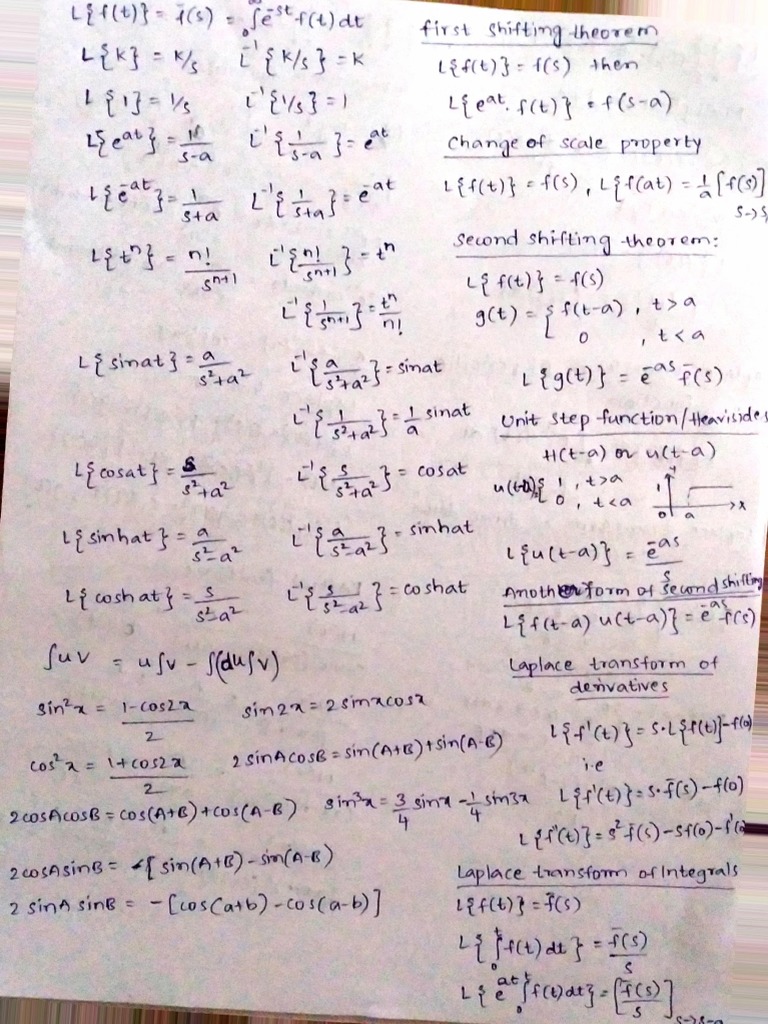 L{f(t)} = f̄(s) = ∫₀^∞ e^-st f(t) dt
L{K} = K/s L⁻¹{K/s} = K
L{1} = 1/s L⁻¹{1/s} = 1
L{e^at} = 1/(s-a) L⁻¹{1/(s-a)} = e^at
L{e^-at} = 1/(s+a) L⁻¹{1/(s+a)} = e^-at
L{t^n} = n!/s^(n+1) L⁻¹{n!/s^(n+1)} = t^n
L⁻¹{1/s^(n+1)} = t^n/n!
L{sinat} = a/(s²+a²) L⁻¹{a/(s²+a²)} = sinat
L⁻¹{1/(s²+a²)} = 1/a sinat
L{cosat} = s/(s²+a²) L⁻¹{s/(s²+a²)} = cosat
L{sinhat} = a/(s²-a²) L⁻¹{a/(s²-a²)} = sinhat
L{coshat} = s/(s²-a²) L⁻¹{s/(s²-a²)} = coshat
∫uv = u∫v - ∫(du∫v)
sin²x = (1-cos2x)/2 sin2x = 2sinxcosx
cos²x = (1+cos2x)/2 2sinAcosB = sin(A+B)+sin(A-B)
2cosAcosB = cos(A+B)+cos(A-B) sin³x = 3/4 sinx - 1/4 sin3x
2cosAsinB = [sin(A+B)-sin(A-B)
2sinAsinB = -[cos(a+b)-cos(a-b)]
first shifting theorem
L{f(t)} = f(s) then
L{e^at. f(t)} = f(s-a)
Change of scale property
L{f(t)} = f(s), L{f(at) = 1/a [f(s)]
s→s/
second shifting theorem:
L{f(t)} = f(s)
g(t) = { f(t-a), t>a
0, t<a
L{g(t)} = e^-as f̄(s)
Unit step function/Heavisides
H(t-a) or u(t-a)
u(t-a){ 1, t>a
0, t<a
1 0 a x
L{u(t-a)} = e^-as/s
Another form of second shifting
L{f(t-a) u(t-a)} = e^-as f̄(s)
Laplace transform of
derivatives
L{f'(t)} = s.L{f(t)}-f(0)
i.e
L{f'(t)} = s.f̄(s)-f(0)
L{f'(t)} = s² f̄(s)-sf(0)-f'(0
Laplace transform of Integrals
L{f(t)} = f̄(s)
L{∫₀^t f(t) dt} = f̄(s)/s
L{e^at ∫₀^t f(t) dt} = [f̄(s)/s] s→s-a